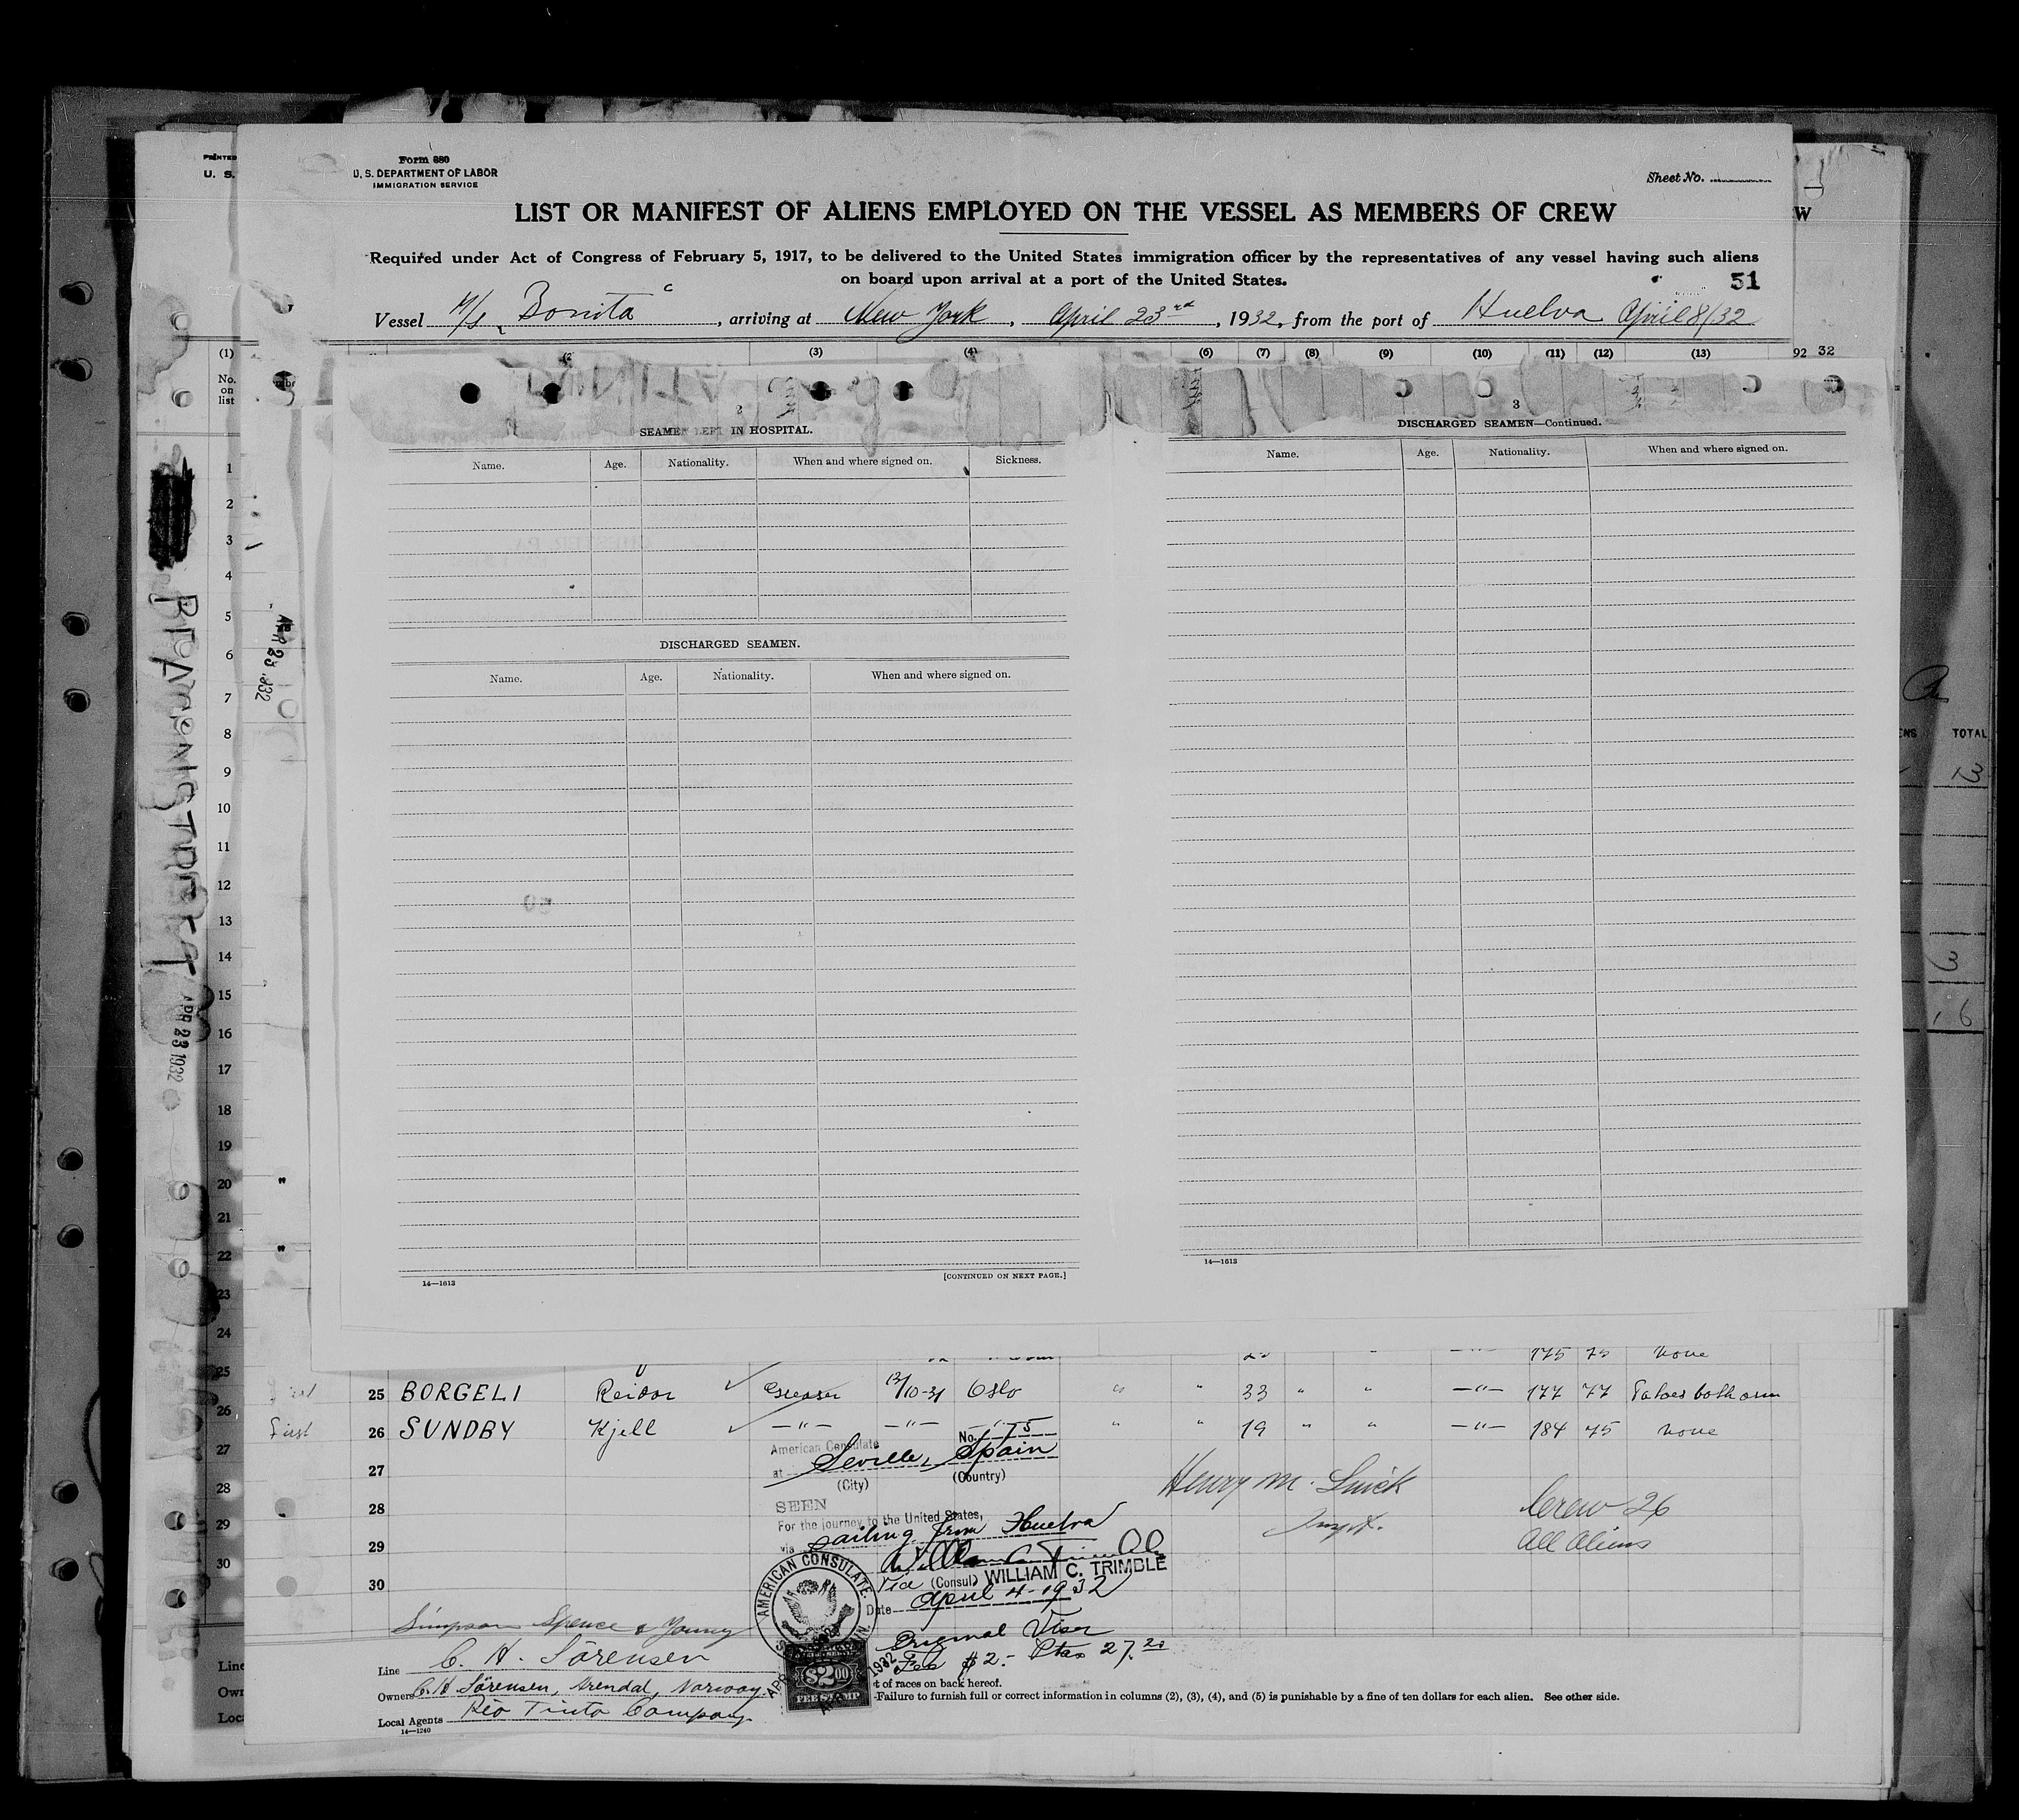 PRINTED
U. S.
Form 680
U. S. DEPARTMENT OF LABOR
IMMIGRATION SERVICE
Sheet No.
LIST OR MANIFEST OF ALIENS EMPLOYED ON THE VESSEL AS MEMBERS OF CREW
W
Required under Act of Congress of February 5, 1917, to be delivered to the United States immigration officer by the representatives of any vessel having such aliens
on board upon arrival at a port of the United States.
51
Vessel M/S „Bonita“, arriving at New York, April 23rd, 1932, from the port of Huelva April 8/32
(1) (2 (3) (4) (6) (7) (8) (9) (10) (11) (12) (13) 92 32
No.
on
list
2
SEAMEN LEFT IN HOSPITAL.
Name. Age. Nationality. When and where signed on. Sickness.
DISCHARGED SEAMEN.
Name. Age. Nationality. When and where signed on.
14—1613 [CONTINUED ON NEXT PAGE.]
3
DISCHARGED SEAMEN—Continued.
Name. Age. Nationality. When and where signed on.
14—1613
1
2
3
4
5
6
7
8
9
10
11
12
13
14
15
16
17
18
19
20 "
21
22 "
23
24
25
26
27
28
29
30
APR 23 1932
APR 23 1932
ENS TOTAL
13
3
16
175 75 None
25 BORGELI Reidar ✓ Greaser 13/10-31 Oslo " " 33 " " —"— 177 77 Tatoes both arm
First 26 SUNDBY Kjell ✓ —"— —"— —"— " " 19 " " —"— 184 75 None
27
28
29
30
No. 75
American Consulate
at Seville, Spain
(City) (Country)
SEEN
For the journey to the United States,
via sailing from Huelva
Vice (Consul) WILLIAM C. TRIMBLE
Date April 4-1932
AMERICAN CONSULATE
Original Visa
Fee $2.- Ptas 27.20
$2.00
FEE STAMP
Henry M.
Crew 26
All Aliens
Simpson Spence & Young
Line C. H. Sörensen
Owners C. H. Sörensen, Arendal, Norway.
Local Agents Rio Tinto Company
14—1240
t of races on back hereof.
Failure to furnish full or correct information in columns (2), (3), (4), and (5) is punishable by a fine of ten dollars for each alien. See other side.
Line
Own
Loca